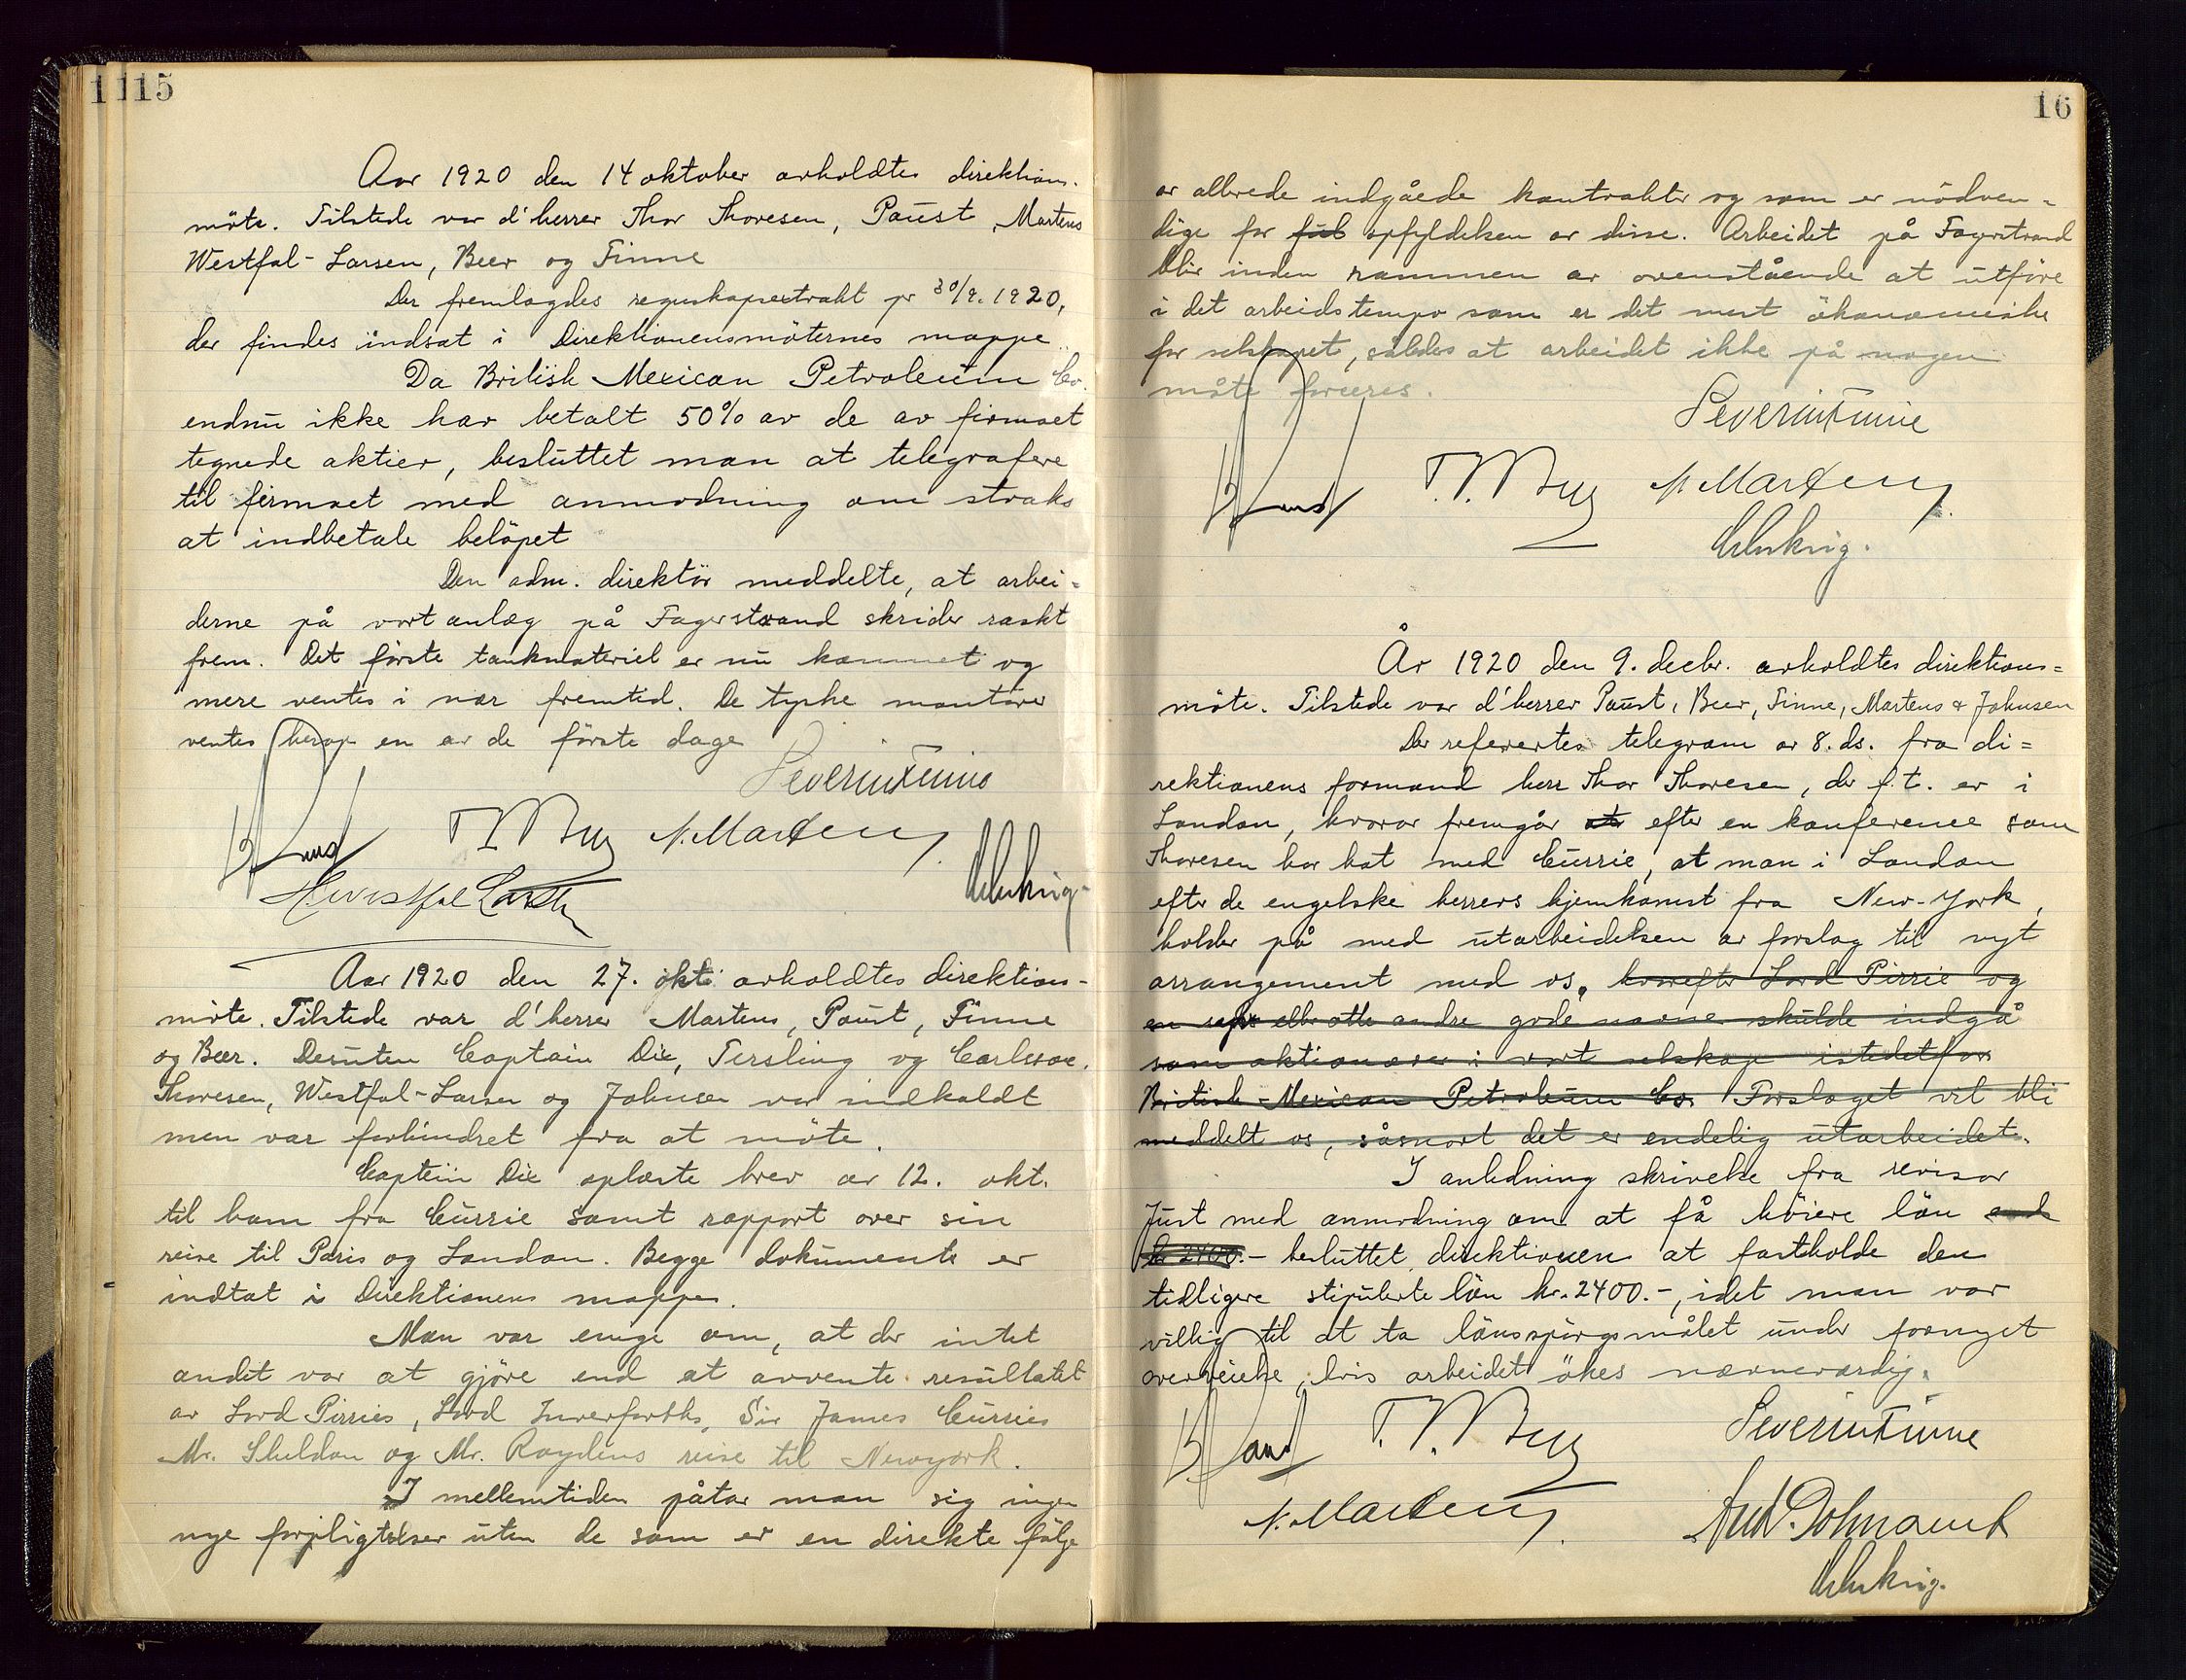 115
Aar 1920 den 14 oktober avholdtes direktions-
möte. Tilstede var d'herrer Thor Thoresen, Paust, Martens
Westfal-Larsen, Beer og Finne
Der fremlagdes regnskapsextrakt pr 30/9. 1920,
der findes indsat i Direktionensmöternes mappe.
Da British Mexican Petroleum Co.
endnu ikke har betalt 50% av de av firmaet
tegnede aktier, besluttet man at telegrafere
til firmaet med anmodning om straks
at indbetale belöpet
Den adm. direktör meddelte, at arbei=
derne på vort anlæg på Fagerstrand skrider raskt
frem. Det förste tankmateriel er nu kommet og
mere ventes i nær fremtid. De tyske montörer
ventes herop en av de förste dage
Severin Finne
T. T. Beer N. Martens
H. Westfal Larsen
Aar 1920 den 27. okt. avholdtes direktions-
möte. Tilstede var d'herrer Martens, Paust, Finne
og Beer. Desuten Captain Dix, Tersling og Carlsson.
Thoresen, Westfal-Larsen og Johnsen var indkaldt
men var forhindret fra at möte.
Captein Dix oplæste brev av 12. okt.
til ham fra Currie samt rapport over sin
reise til Paris og London. Begge dokumenter er
indtat i Direktionens mappe.
Man var enige om, at der intet
andet var at gjöre end at avvente resultatet
av Lord Pirries, Lord Inverforths, Sir James Curries
Mr. Sheldon og Mr. Roydens reise til Newyork.
I mellemtiden påtar man sig ingen
nye forpligtelser uten de som er en direkte fölge
16
av allerede indgåede kontrakter og som er nödven=
dige for ful opfyldelsen av disse. Arbeidet på Fagerstrand
blir inden rammen av ovenstående at utföre
i det arbeidstempo som er det mest ökonomiske
for selskapet, således at arbeidet ikke på nogen
måte forceres.
Severin Finne
T. T. Beer N. Martens
År 1920 den 9. decbr. avholdtes direktions=
möte. Tilstede var d'herrer Paust, Beer, Finne, Martens & Johnsen
Der refertes telegram av 8. ds. fra di=
rektionens formand herr Thor Thoresen, der f.t. er i
London, hvorav fremgår at efter en konference som
Thoresen har hat med Currie, at man i London
efter de engelske herrers hjemkomst fra New-York,
holder på med utarbeidelsen av forslag til nyt
arrangement med os, hvorefter Lord Pirrie og
en syv eller otte andre gode navne skulde indgå
som aktionærer i vort selskap istedetfor
British-Mexican Petroleum Co. Forslaget vil bli
meddelt os, såsnart det er endelig utarbeidet.
I anledning skrivelse fra revisor
Just med anmodning om at få höiere lön end
kr 2400.- besluttet direktionen at fastholde den
tidligere stipulerte lön kr. 2400.-, idet man var
villig til at ta lönsspörgsmålet under fornyet
overveielse, hvis arbeidet ökes nævneværdig.
T. T. Beer Severin Finne
N. Martens